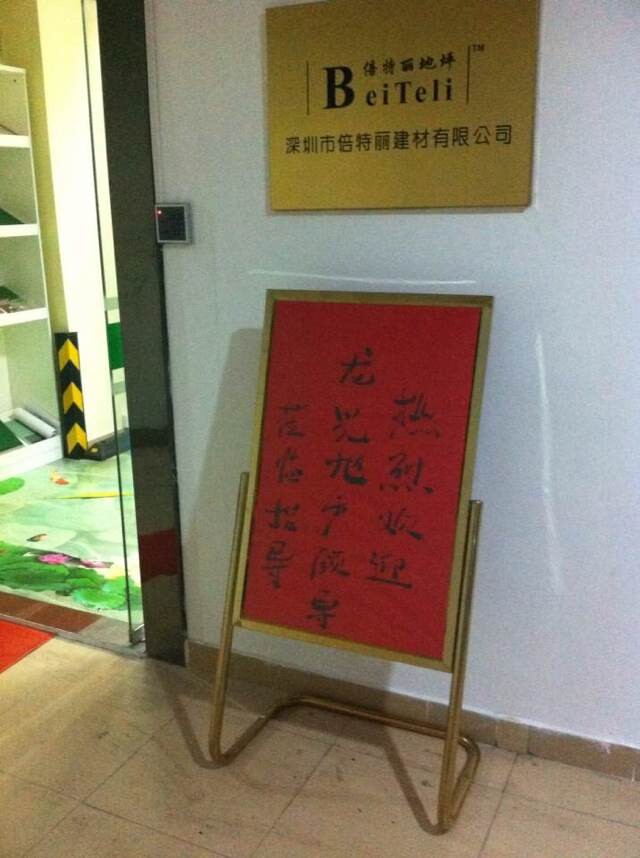 倍特丽地坪
BeiTeli TM
深圳市倍特丽建材有限公司
热烈欢迎
龙 领导
莅临指导